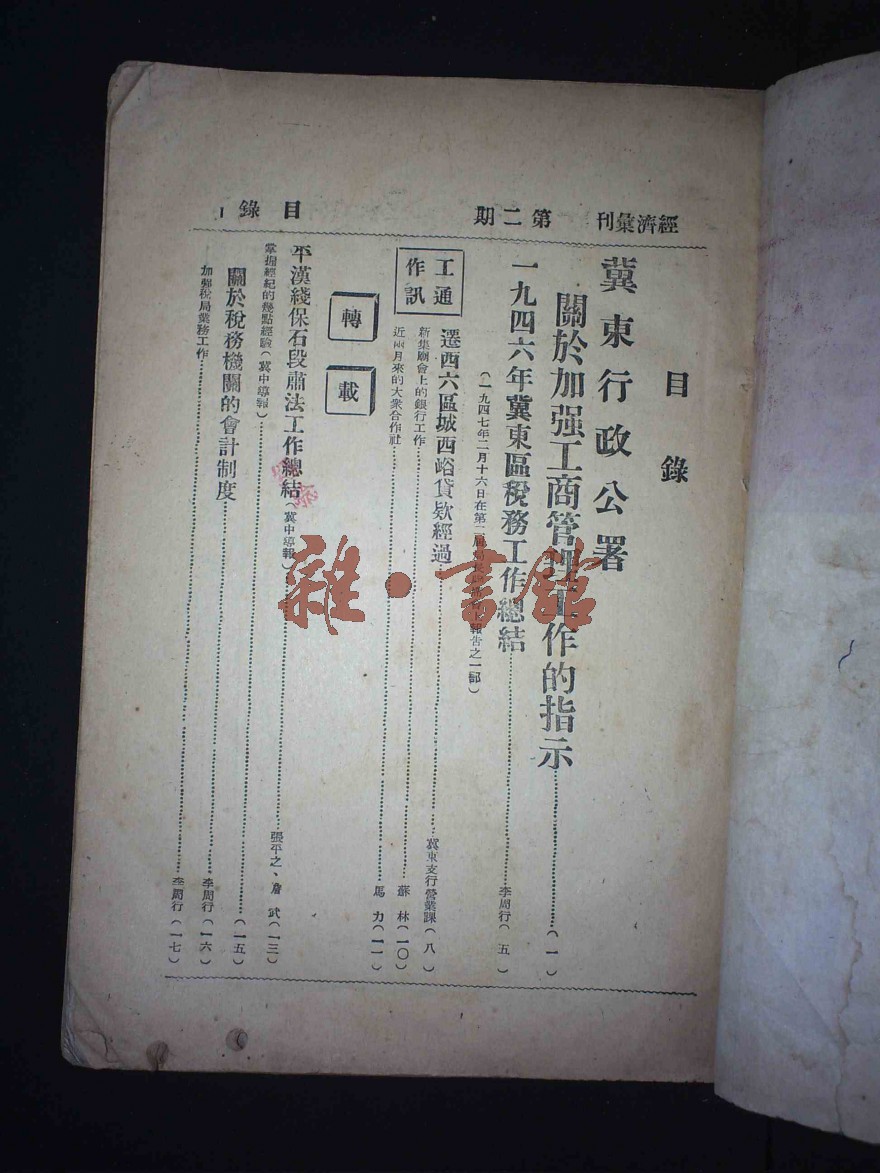 經濟彙刊 第二期 目錄
目錄
冀東行政公署
關於加强工商管理工作的指示 (一)
一九四六年冀東區稅務工作總結 李周行(五)
(一九四七年二月十六日在第二報告之一部)
工作通訊
遷西六區城西峪貸欵經過 冀東支行營業課(八)
新集廟會上的銀行工作 蘇林(一〇)
近兩月來的大衆合作社 馬力(一一)
轉載
平漢綫保石段肅法工作總結(冀中導報) 張平之、詹武(一三)
掌握經紀的幾點經驗(冀中導報)
關於稅務機關的會計制度 (一五)
李周行(一六)
加鄉稅局業務工作 李周行(一七)
雜·書館